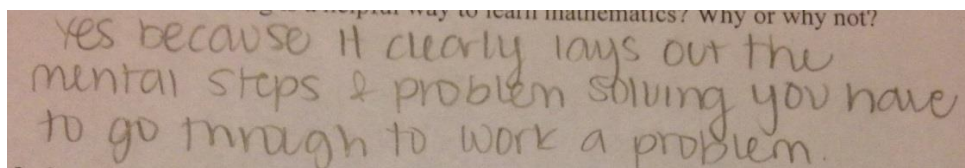 helpful way to learn mathematics? Why or why not?
Yes because it clearly lays out the
mental steps & problem solving you have
to go through to work a problem.